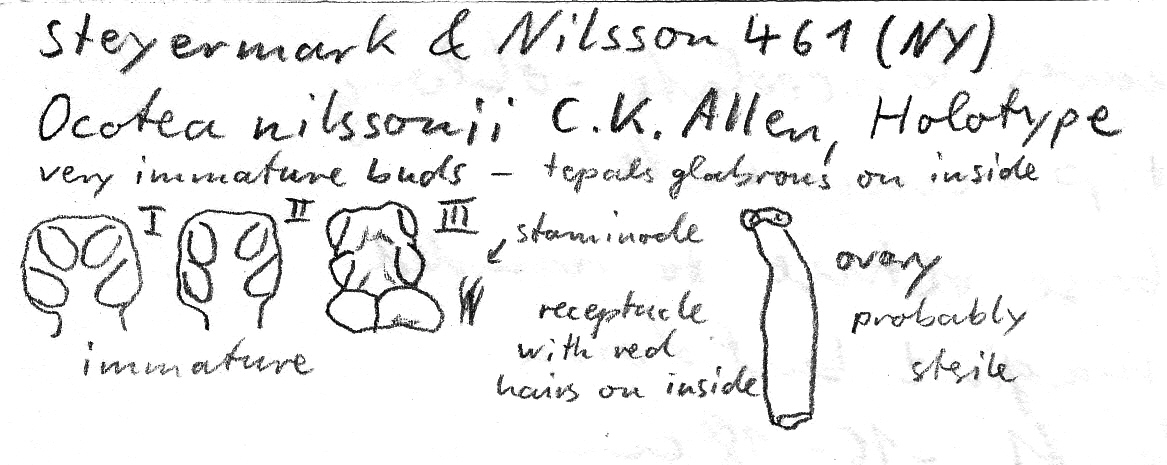 Steyermark & Nilsson 461 (NY)
Ocotea nilssonii C.K. Allen, Holotype
very immature buds – tepals glabrous on inside
I II III
staminode
ovary
receptacle
probably
with red
immature
sterile
hairs on inside